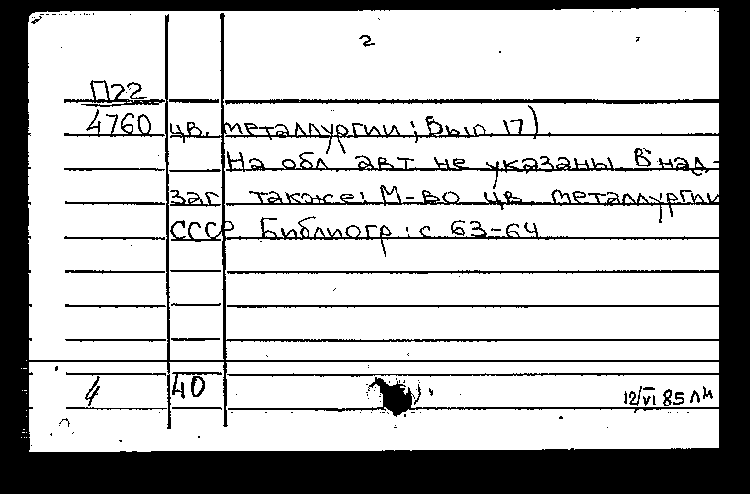 2
П22
4760 цв. металлургии; Вып. 17).
На обл. авт. не указаны. В над-
заг. также: М-во цв. металлургии
СССР. Библиогр.: с. 63-64
40
12/VI 85 ЛМ